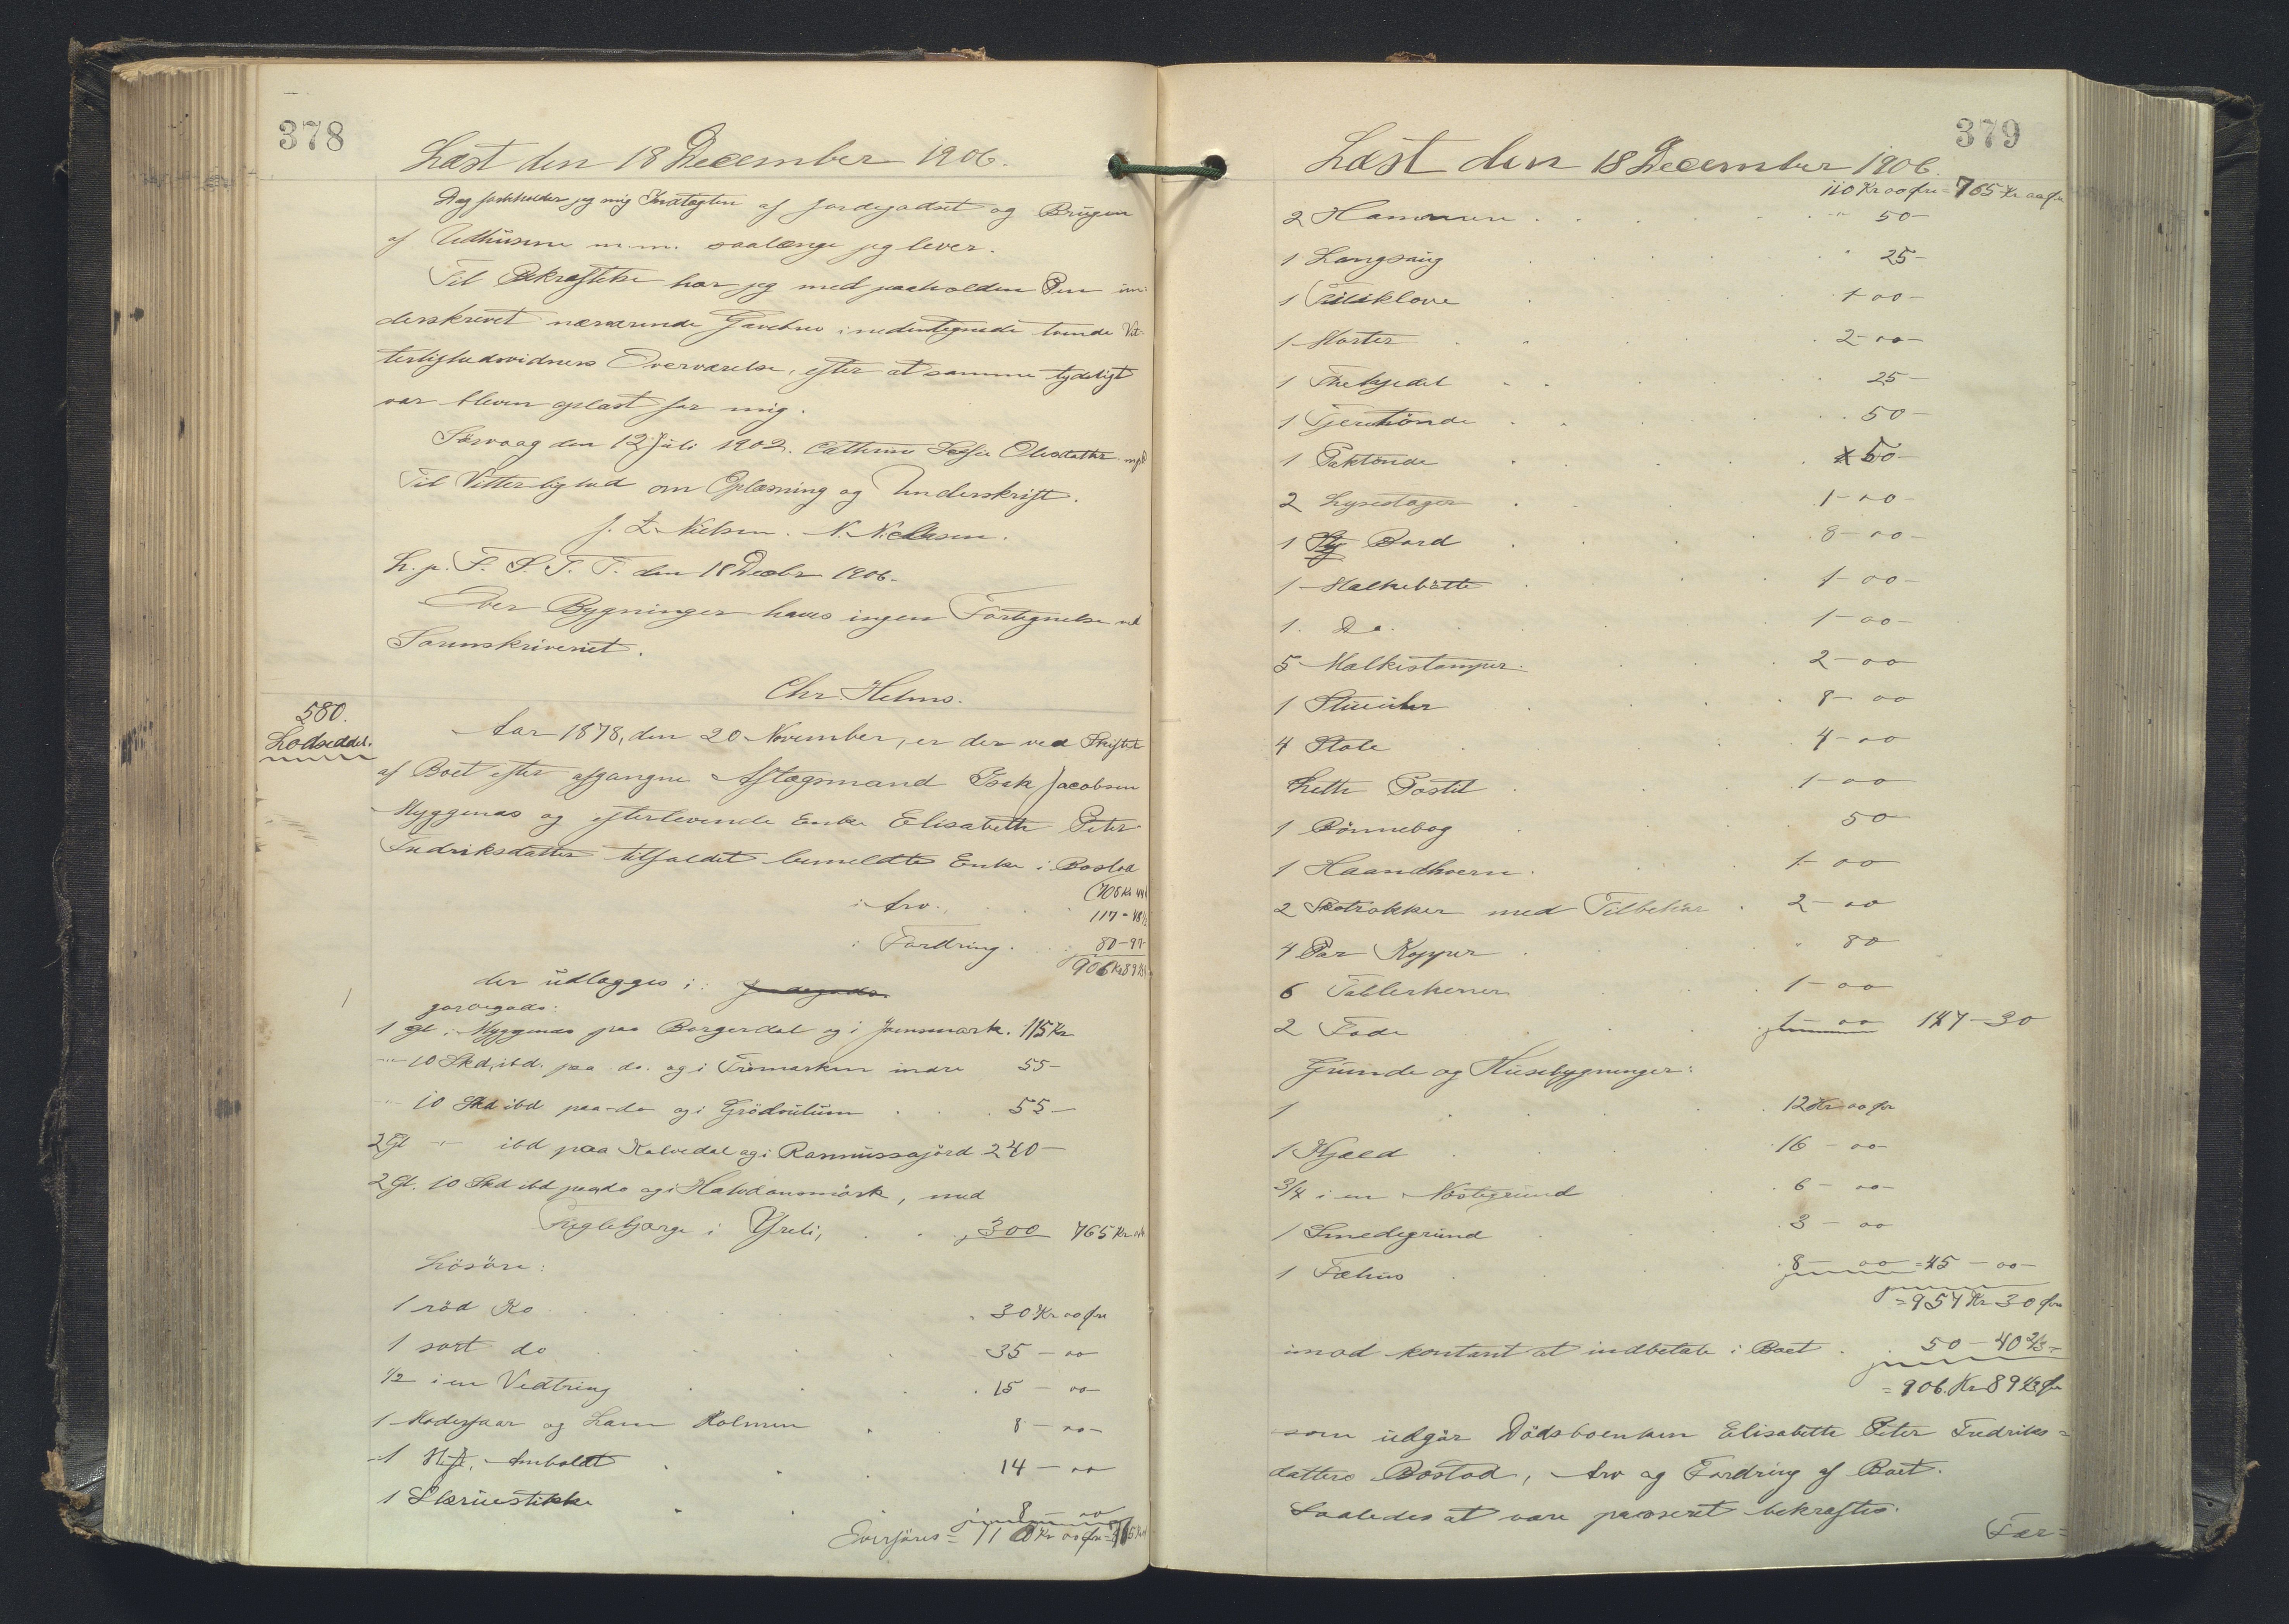 378
Læst den 18 December 1906.
Dog forbeholder jeg mig Indtægten af Jordegodset og Brugen
af Udhusene m.m. saalænge jeg lever.
Til Bekræftelse har jeg med paaholden Pen un-
derskrevet nærværende Gavebrev i nedentegnede tvende Vit-
terlighedsvidners Overværelse, efter at samme tydeligt
var bleven oplæst for mig.
Sørvaag den 12 Juli 1902. Cathrine Sofie Olesdatter m.p.
Til Vitterlighed om Oplæsning og Underskrift.
J. Z. Nielsen. N. Nielsen.
L. p. F. S. T. T. den 18 Decbr 1906.
Over Bygninger haves ingen Fortegnelse ved
Sorenskriveriet.
Chr. Helms.
580.
Lodseddel.
Aar 1878, den 20 November, er der ved Skiftet
af Boet efter afgangne Aftægsmand Isak Jacobsen
Myggenæs og efterlevende Enke Elisabeth Peter
Fredriksdatter tilfaldet bemeldte Enke i Boslod
708 Kr 44
i Arv. 117-48 1/3
i Fordring. 80-97
906 Kr 89 1/3
der udlægges i: Jordegods.
Jordegods:
1 Gl. i Myggenæs paa Borgerdal og i Jansmark. 115 Kr
" 10 Skd. ibd. paa do. og i Trømarken indre 55-
" 10 Skd ibd paa do og i Grödvutum 55-
2 Gl " ibd paa Kalvedal og i Rasmussajörd 240-
2 Gl. 10 Skd ibd paa do og i Halvdansmörk, med
Fuglebjærge i Yreli, 300 765 Kr
Lösöre:
1 röd Ko 30 Kr 00 Øre
1 sort do 35-00
1/2 i en Vedbring 15-00
1 Moderfaar og Lam Holmen 8-00-
1 Amboldt 14-00
1 Skruestikke 8-00
Overføres = 110 Kr 00 Øre = 765 Kr
379
Læst den 18 December 1906.
110 Kr 00 Øre = 765 Kr 00 Øre
2 Hammere 50-
1 Langsaug 25-
1 Filiklove 1-00-
1 Morter 2-00-
1 Thekjedel 25-
1 Tjeretönde 50-
1 Taktönde 50-
2 Lysestager 1-00-
1 Bord 8-00-
1 Malkebötte 1-00-
1. Do. 1-00-
5 Malkestamper. 2-00
1 Stueuhr 8-00
4 Stole 4-00
Lette Postil 1-00
1 Bönnebog 50
1 Haandkværn. 1-00
2 Skotrokker med Tilbehör 2-00
4 Par Kopper 80
6 Tallerkener 1-00
2 Fade 1-00 147-30
Grunde og Husebygninger:
1 12 Kr 00 Ør
1 Hjæld 16-00
3/4 i en Nöstegrund 6-00
1 Smedegrund 3-00
1 Fæhus 8-00 = 45-00-
= 957 Kr 30 Øre
imod kontant at indbetale i Boet. 50-40 2/3-
= 906 Kr 89 1/3 Ør
som udgör Dödsboenken Elisabeth Peter Fredriks=
datters Boslod, Arv og Fordring af Boet.
Saaledes at være passeret bekræftes.
Fær=